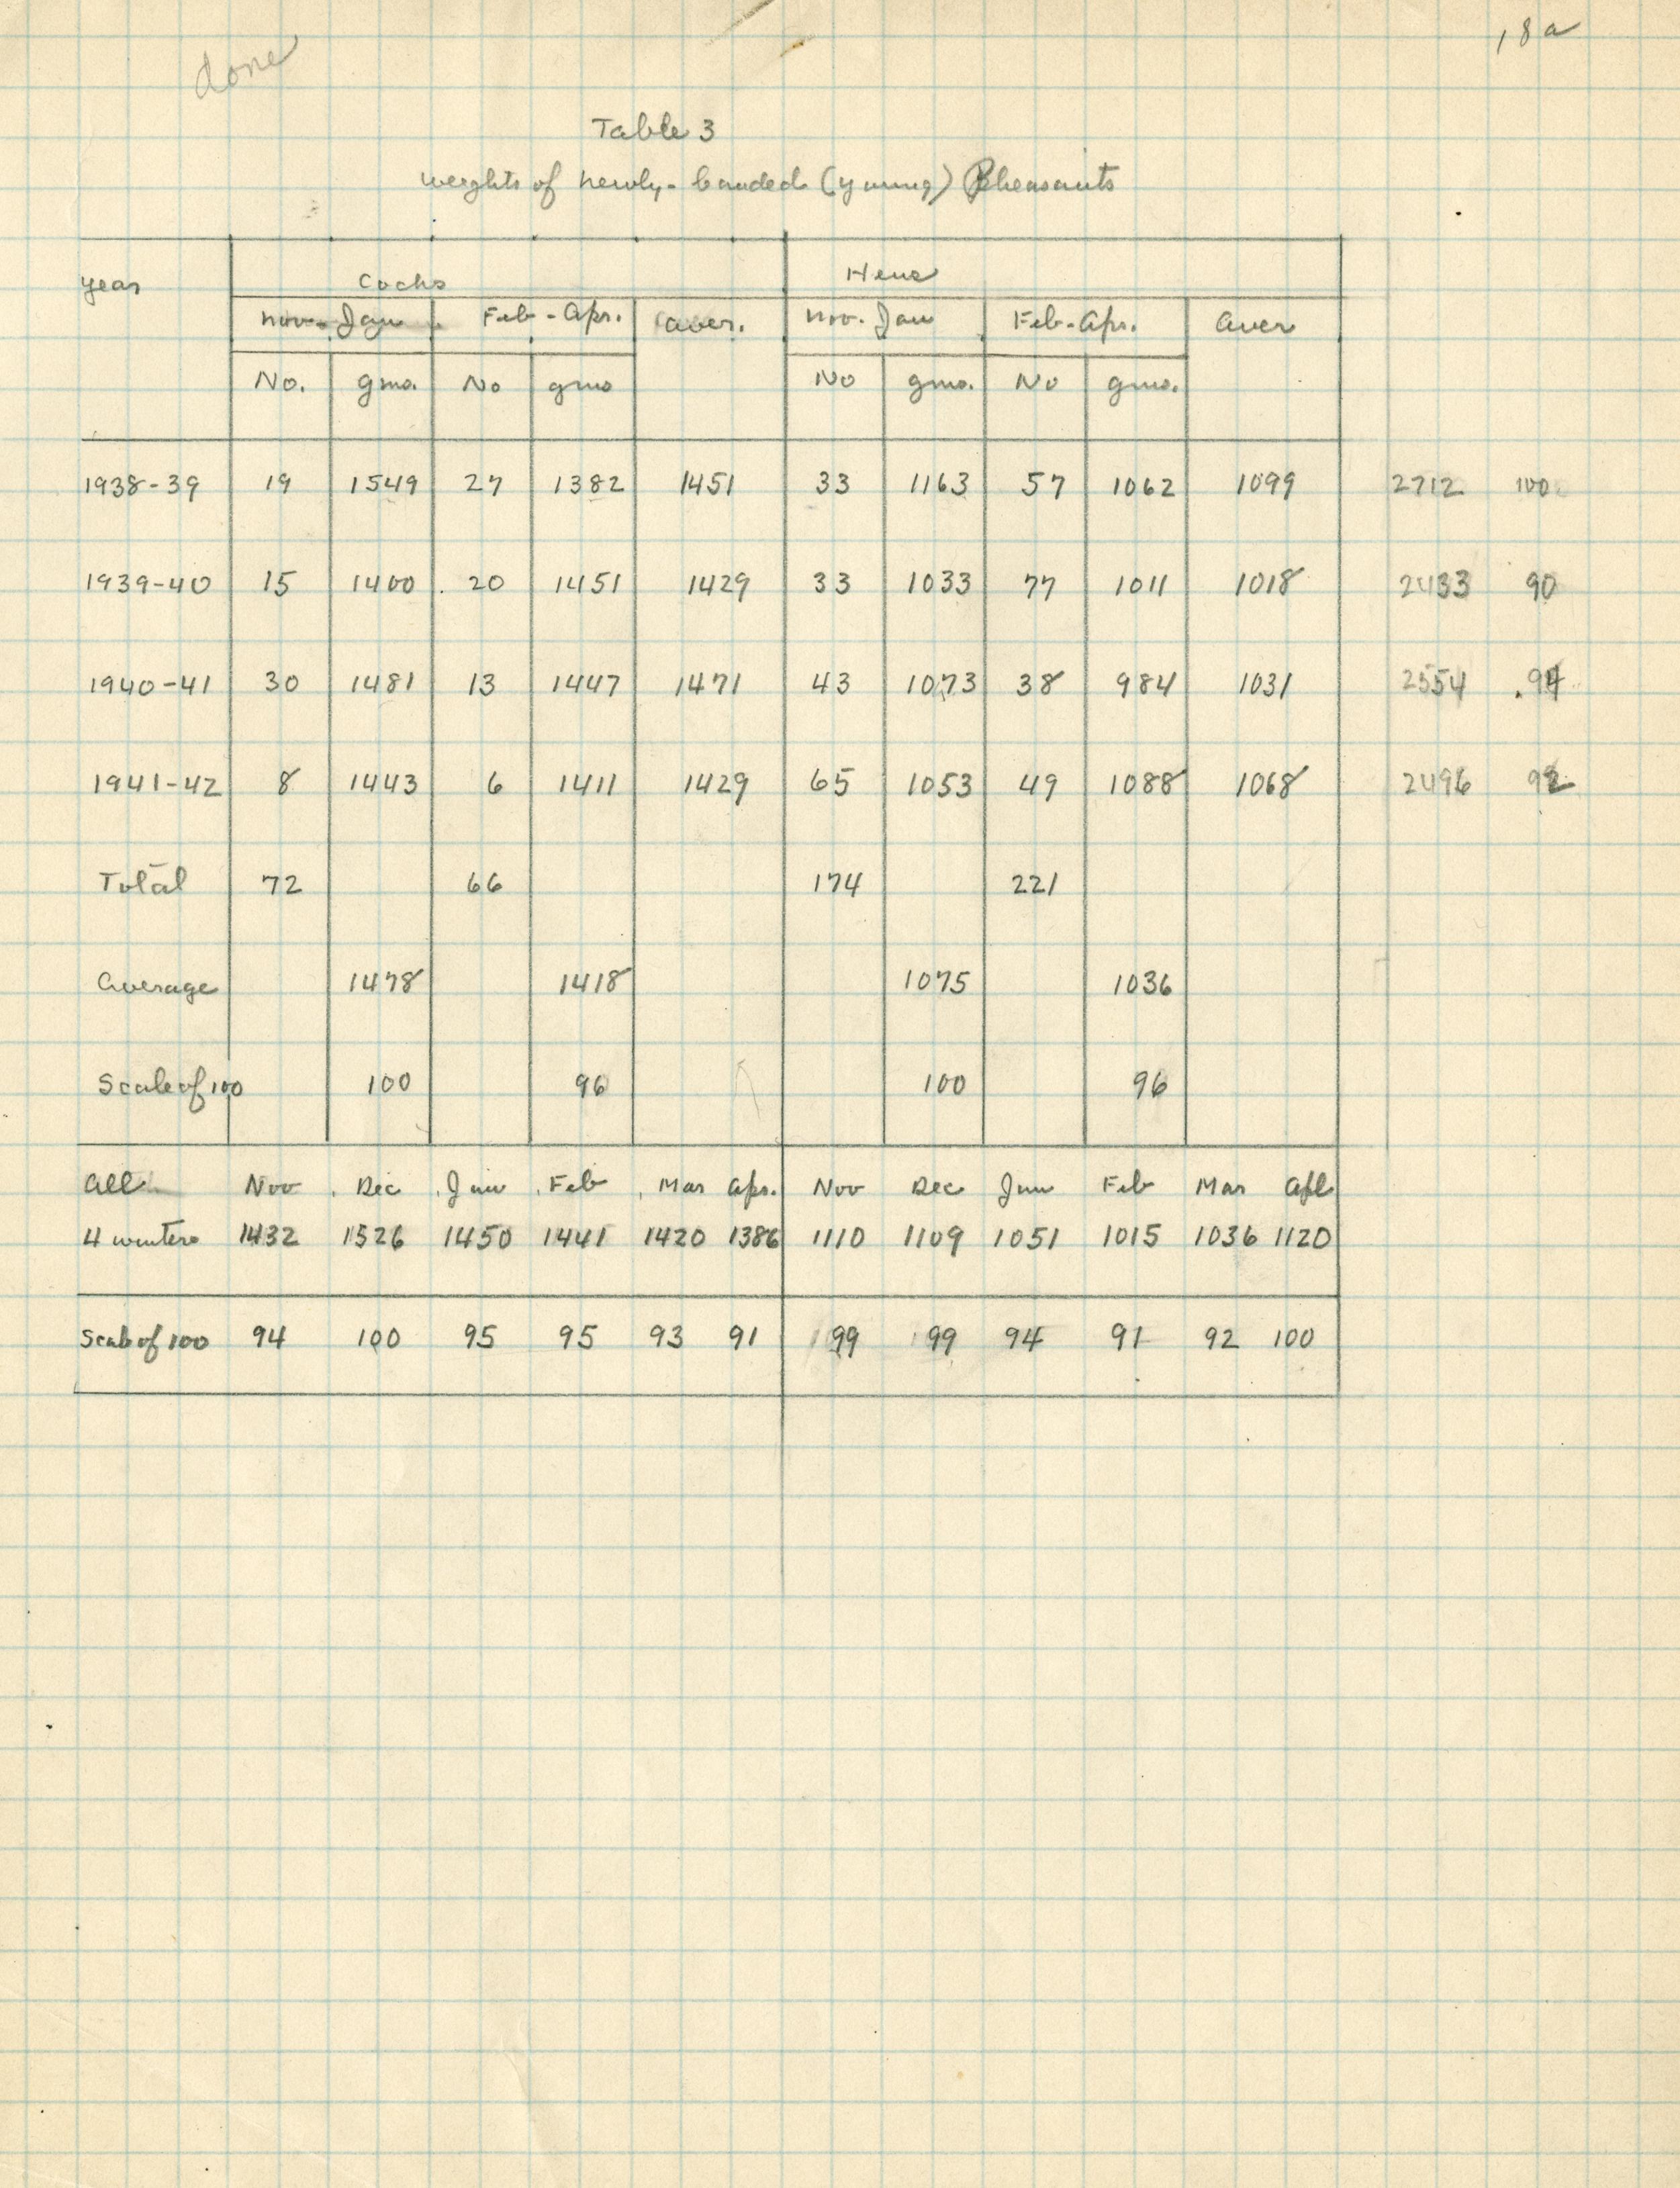 done
18a
Table 3
Weights of newly-banded (young) Pheasants
year Cocks Hens
Nov-Jan Feb-Apr. aver. Nov-Jan Feb-Apr. aver
No. gms. No gms No gms. No gms.
1938-39 19 1549 27 1382 1451 33 1163 57 1062 1099 2712 100
1939-40 15 1400 20 1451 1429 33 1033 77 1011 1018 2433 90
1940-41 30 1481 13 1447 1471 43 1073 38 984 1031 2554 .94
1941-42 8 1443 6 1411 1429 65 1053 49 1088 1068 2496 92
Total 72 66 174 221
Average 1478 1418 1075 1036
Scale of 100 100 96 100 96
All Nov Dec Jan Feb Mar Apr. Nov Dec Jan Feb Mar Apl
4 winters 1432 1526 1450 1441 1420 1386 1110 1109 1051 1015 1036 1120
Scale of 100 94 100 95 95 93 91 99 99 94 91 92 100